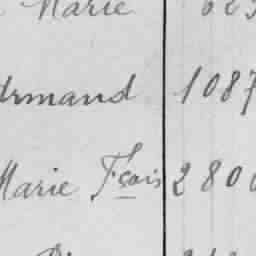 Marie
Armand 1087
Marie Fçois 2800